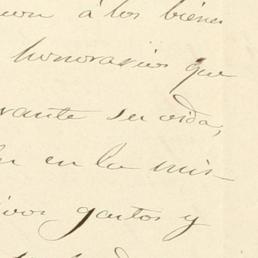 á los bienes
honorarios que
rante su vida,
en la mis-
gastos y